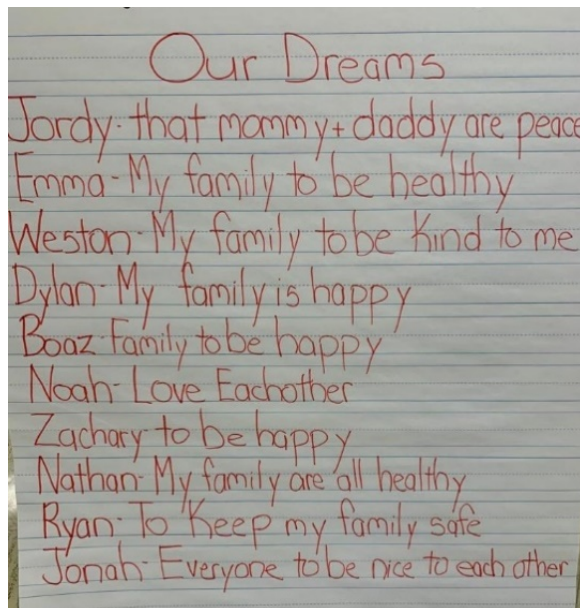 Our Dreams
Jordy- that mommy + daddy are peace
Emma- My family to be healthy
Weston- My family to be kind to me
Dylan- My family is happy
Boaz- Family to be happy
Noah- Love Eachother
Zachary- to be happy
Nathan- My family are all healthy
Ryan- To Keep my family safe
Jonah- Everyone to be nice to each other